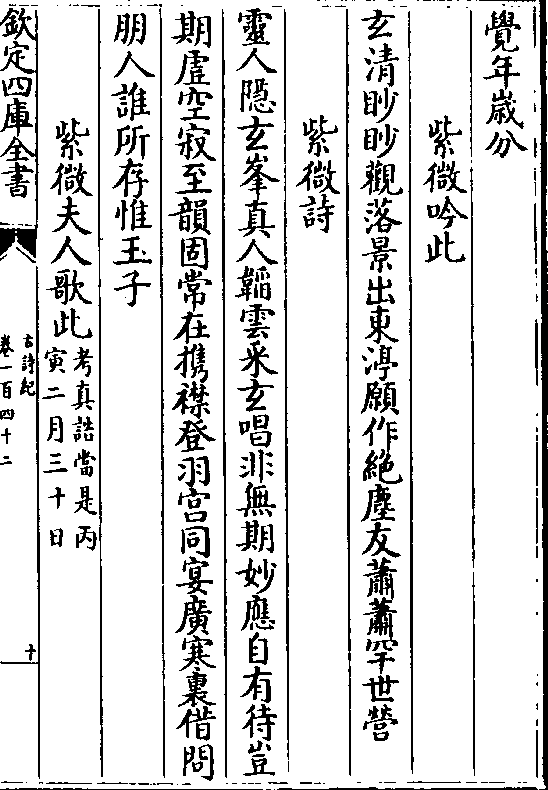 覺年歳分
紫微吟此
玄清眇眇觀落景出東渟願作絶塵友蕭蕭罕世營
紫微詩
靈人隱玄峯真人韜雲采玄唱非無期妙應自有待豈
期虛空寂至韻固常在攜襟登羽宫同宴廣寒裏借問
朋人誰所存惟玉子
紫微夫人歌此考真誥當是丙
寅二月三十日
欽定四庫全書
古詩紀
卷一百四十二
十